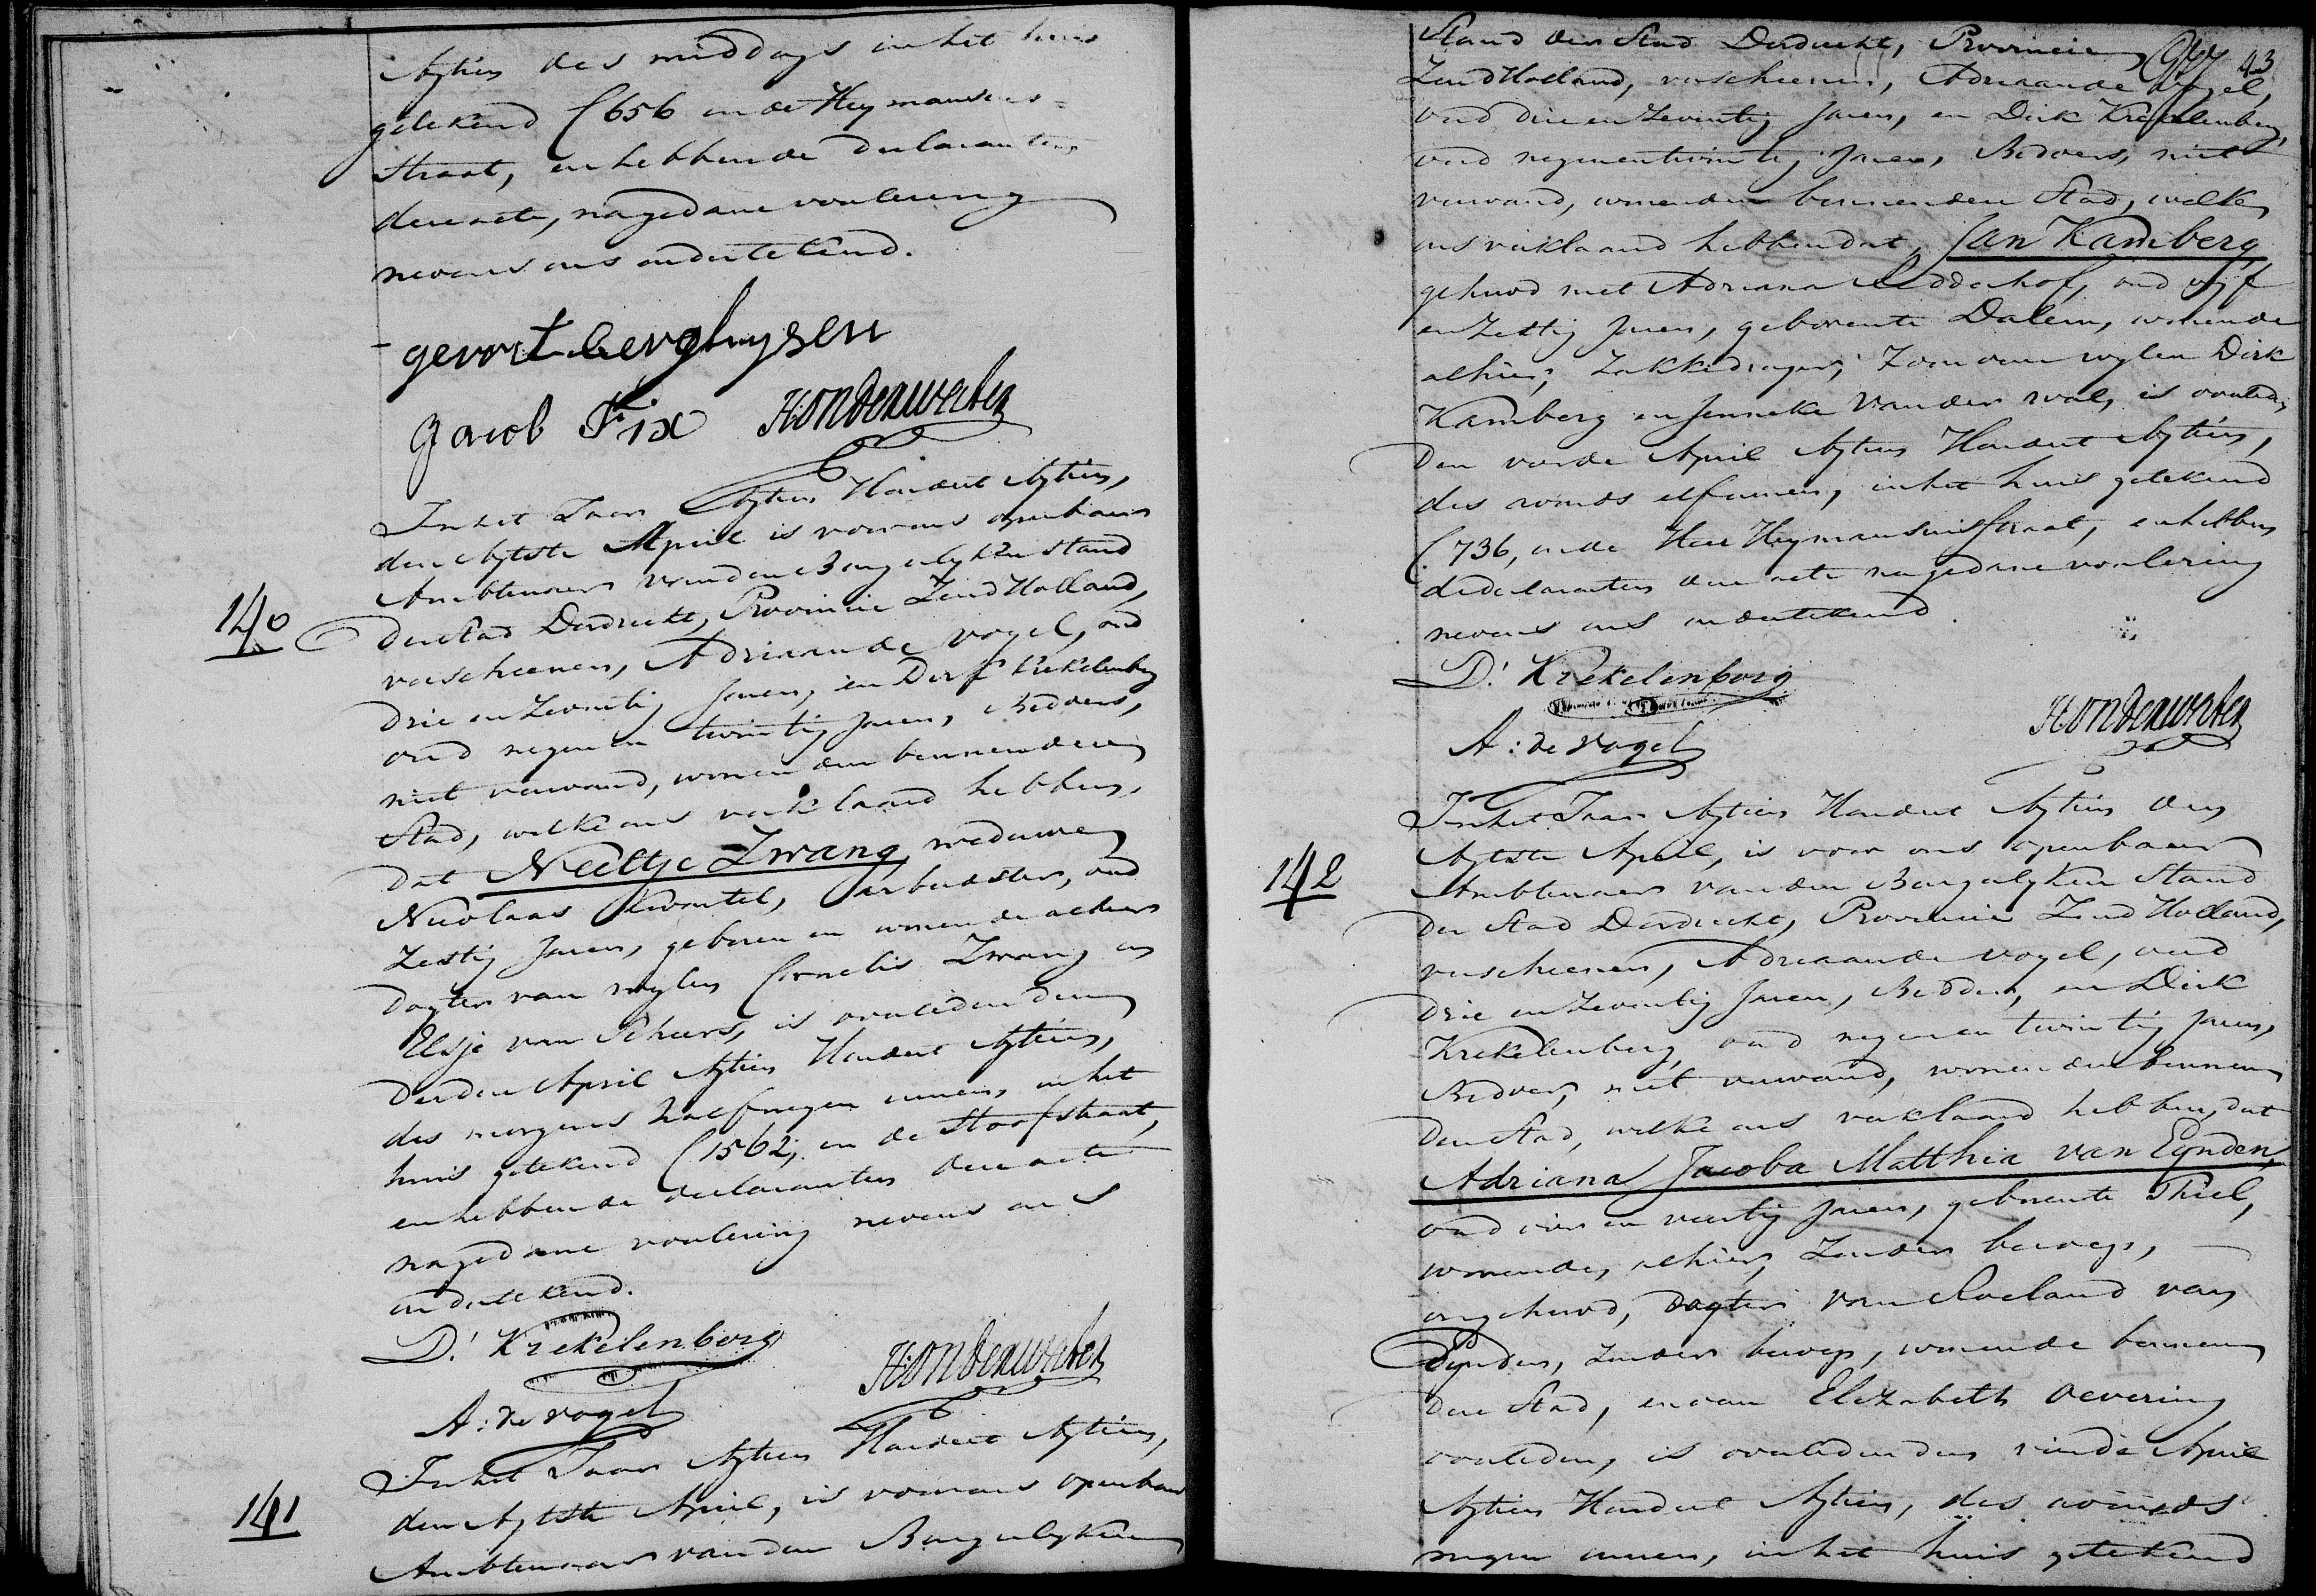 Agtien des middags in het huis
getekend C656 in de Heymansuis=
straat, en hebben de declaranten
deze acte, na gedane voorlezing
nevens ons ondertekend.
gevort berghuysen
Jacob Fix Hondenwerber
140
In het Jaar Agtien Hondert Agtien,
den Agtste April is voor ons openbaar
Ambtenaar van den Burgelyken Stand
der Stad Dordrecht, Provincie Zuid Holland,
verscheenen, Adriaan de Vogel, oud
drie en Zeventig Jaren, en Dirk Krekelenberg
oud negen en twintig Jaren, Bedders,
niet verwand, wonende binnen dezer
Stad, welke ons verklaard hebben,
dat Neeltje Zwang, weduwe
Nicolaas Kwartel, Arbeidster, oud
Zestig Jaren, geboren en wonende alhier
dogter van wylen Cornelis Zwang en
Elsje van Scheers, is overleden den
derden April Agtien Hondert Agtien,
des morgens half negen uuren, in het
huis getekend C1562, in de Stoofstraat,
en hebben de declaranten deze acte
na gedane voorlezing nevens ons
ondertekend.
D. Krekelenberg
Hondenwerber
A: de vogel
141
In het Jaar Agtien Hondert Agtien,
den Agtste April, is voor ons openbaar
Ambtenaar van den Burgelyken
43
Stand der Stad Dordrecht, Provincie
Zuid Holland, verscheenen, Adriaan de Vogel,
oud drie en Zeventig Jaren, en Dirk Krekelenberg,
oud negen en twintig Jaren, Bedders, niet
verwand, wonende binnen dezer Stad, welke
ons verklaard hebben dat, Jan Kamberg
gehuwd met Adriana Lodderhof, oud vyf
en Zestig Jaren, geboren te Dalem, wonende
alhier, Zakkedrager, Zoon van wylen Dirk
Kamberg en Jenneke van der wal, is overleden
den vierde April Agtien Hondert Agtien,
des avonds elf uuren, in het huis getekend
C736, in de Heer Heymansuisstraat, en hebben
de declaranten deze acte na gedane voorlezing
nevens ons ondertekend.
D. Krekelenberg
Hondenwerber
A: de vogel
142
In het Jaar Agtien Hondert Agtien den
Agtste April, is voor ons openbaar
Ambtenaar van den Burgelyken Stand
der Stad Dordrecht, Provincie Zuid Holland,
verscheenen, Adriaan de Vogel, oud
drie en Zeventig Jaren, Bedder, en Dirk
Krekelenberg, oud negen en twintig Jaren,
Bedder, niet verwand, wonende binnen
deze Stad, welke ons verklaard hebben, dat
Adriana Jacoba Matthia van Eynden,
oud vier en veertig Jaren, geboren te Thiel,
wonende, alhier, Zonder beroep,
ongehuwd, Dogter van Roeland van
Eynden, Zonder beroep, wonende binnen
deze Stad, en van Elizabeth Oevering
overleden, is overleden den vierde April
Agtien Hondert Agtien, des avonds
negen uuren, in het huis getekend